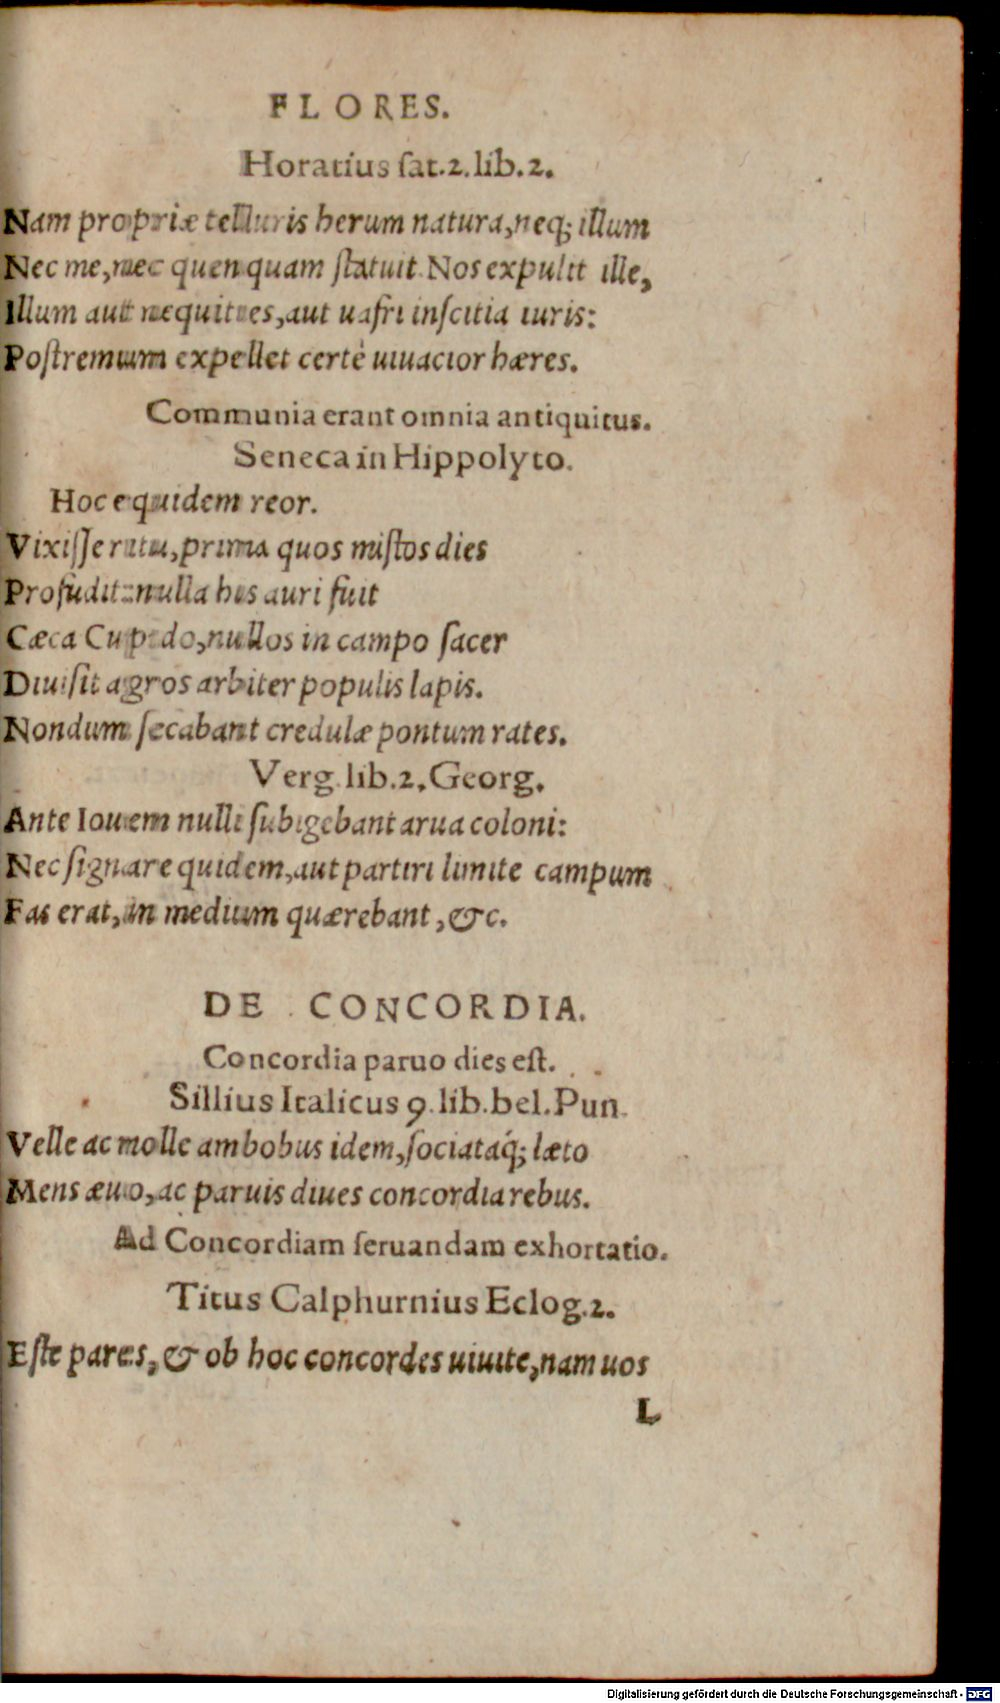 FLORES.
Horatius ſat.2.lib.2.
Nam propriæ telluris herum natura,neq; illum
Nec me,nec quenquam ſtatuit. Nos expulit ille,
Illum aut nequities,aut uafri inſcitia iuris:
Poſtremum expellet certè uiuacior hæres.
Communia erant omnia antiquitus.
Seneca in Hippolyto.
Hoc equidem reor.
Vixiſſe ritu,prima quos miſtos dies
Profudit:nulla his auri fuit
Cæca Cupido,nullos in campo ſacer
Diuiſit agros arbiter populis lapis.
Nondum ſecabant credulæ pontum rates.
Verg.lib.2.Georg.
Ante Iouem nulli ſubigebant arua coloni:
Nec ſignare quidem,aut partiri limite campum
Fas erat,in medium quærebant,&c.
DE CONCORDIA.
Concordia paruo dies eſt.
Sillius Italicus 9.lib.bel.Pun.
Velle ac molle ambobus idem,ſociataq́; læto
Mens æuo,ac paruis diues concordia rebus.
Ad Concordiam ſeruandam exhortatio.
Titus Calphurnius Eclog.2.
Eſte pares,& ob hoc concordes uiuite,nam uos
L
Digitalisierung gefördert durch die Deutsche Forschungsgemeinschaft - DFG